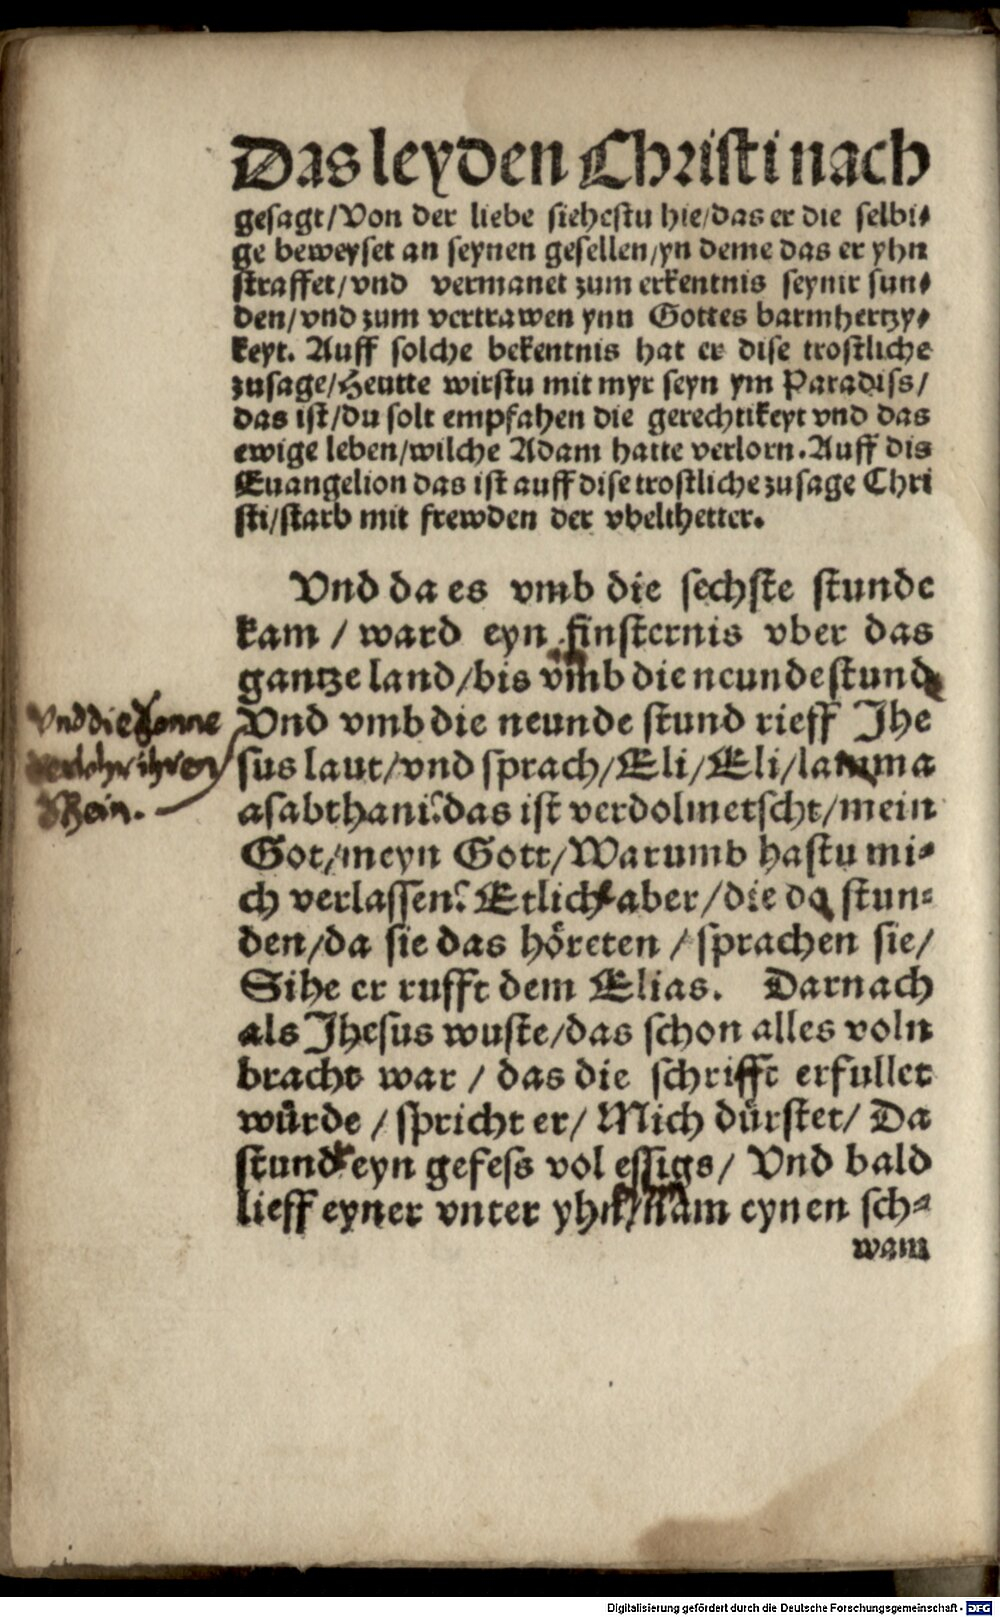 Das leyden Christi nach
gesagt/Von der liebe siehestu hie/das er die selbi-
ge beweyset an seynen gesellen/yn deme das er yhn
straffet/vnd vermanet zum erkentnis seynir sun-
den/vnd zum vertrawen ynn Gottes barmhertzy-
keyt. Auff solche bekentnis hat er dise trostliche
zusage/Heutte wirstu mit myr seyn ym Paradiss/
das ist/du solt empfahen die gerechtikeyt vnd das
ewige leben/wilche Adam hatte verlorn. Auff dis
Euangelion das ist auff dise trostliche zusage Chri
sti/starb mit frewden der vbelthetter.
Vnd da es vmb die sechste stunde
kam / ward eyn finsternis vber das
gantze land/bis vmb die neunde stund
Vnd die Sonne
verlohr ihren
Schein.
Vnd vmb die neunde stund rieff Jhe
sus laut/vnd sprach/Eli/Eli/lamma
asabthani? das ist verdolmetscht/mein
Got/meyn Gott/Warumb hastu mi-
ch verlassen? Etlich aber/die da stun-
den/da sie das höreten / sprachen sie/
Sihe er rufft dem Elias. Darnach
als Jhesus wuste/das schon alles voln
bracht war / das die schrifft erfullet
würde / spricht er/ Mich dürstet/ Da
stund eyn gefess vol essigs/ Vnd bald
lieff eyner vnter yhn/nam eynen sch-
wam
Digitalisierung gefördert durch die Deutsche Forschungsgemeinschaft - DFG